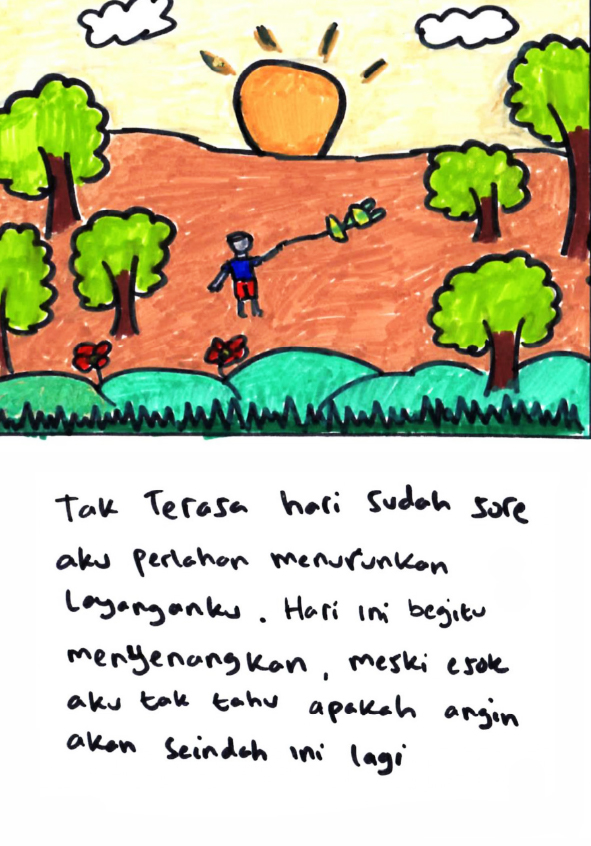 Tak Terasa hari sudah sore
aku perlahan menurunkan
Layanganku. Hari ini begitu
menyenangkan, meski esok
aku tak tahu apakah angin
akan seindah ini lagi